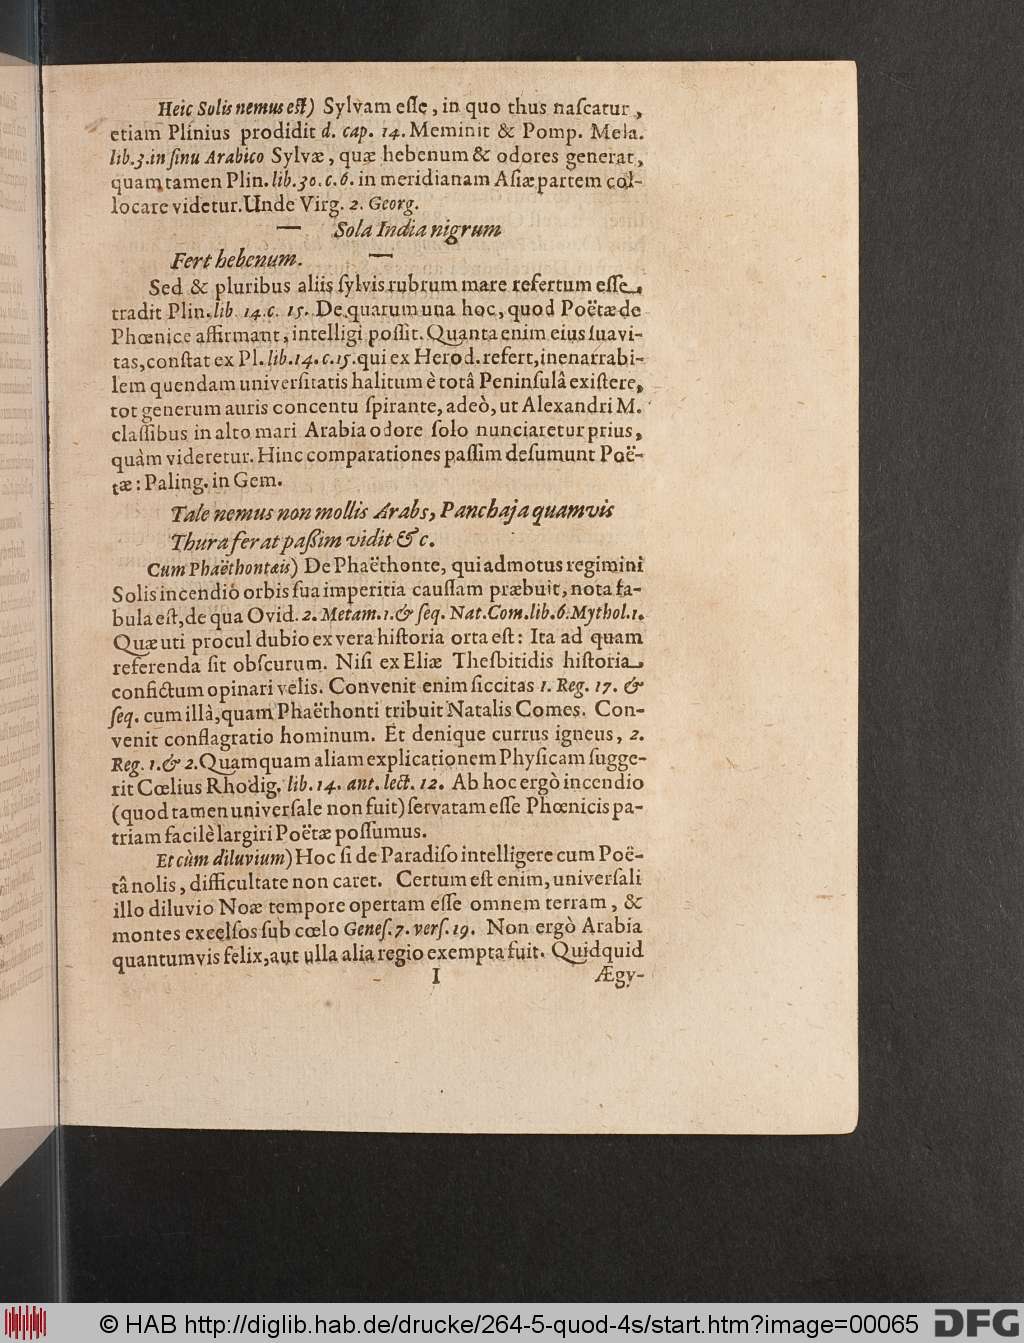 Heic Solis nemus est) Sylvam esse, in quo thus nascatur,
etiam Plinius prodidit d. cap. 14. Meminit & Pomp. Mela.
lib. 3. in sinu Arabico Sylvæ, quæ hebenum & odores generat,
quam tamen Plin. lib. 30. c. 6. in meridianam Asiæ partem col-
locare videtur. Unde Virg. 2. Georg.
— Sola India nigrum
Fert hebenum. —
Sed & pluribus aliis sylvis rubrum mare refertum esse,
tradit Plin. lib. 14. c. 15. De quarum una hoc, quod Poëtæ de
Phœnice affirmant, intelligi possit. Quanta enim eius suavi-
tas, constat ex Pl. lib. 14. c. 15. qui ex Herod. refert, inenarrabi-
lem quendam universitatis halitum è totâ Peninsulâ existere,
tot generum auris concentu spirante, adeò, ut Alexandri M.
classibus in alto mari Arabia odore solo nunciaretur prius,
quàm videretur. Hinc comparationes passim desumunt Poë-
tæ: Paling. in Gem.
Tale nemus non mollis Arabs, Panchaja quamvis
Thura ferat passim vidit &c.
Cum Phaëthontæis) De Phaëthonte, qui admotus regimini
Solis incendiô orbis sua imperitia caussam præbuit, nota fa-
bula est, de qua Ovid. 2. Metam. 1. & seq. Nat. Com. lib. 6. Mythol. 1.
Quæ uti procul dubio ex vera historia orta est: Ita ad quam
referenda sit obscurum. Nisi ex Eliæ Thesbitidis historia
confictum opinari velis. Convenit enim siccitas 1. Reg. 17. &
seq. cum illâ, quam Phaëthonti tribuit Natalis Comes. Con-
venit conflagratio hominum. Et denique currus igneus, 2.
Reg. 1. & 2. Quamquam aliam explicationem Physicam sugge-
rit Cœlius Rhodig. lib. 14. ant. lect. 12. Ab hoc ergò incendio
(quod tamen universale non fuit) servatam esse Phœnicis pa-
triam facilè largiri Poëtæ possumus.
Et cùm diluvium) Hoc si de Paradiso intelligere cum Poë-
tâ nolis, difficultate non caret. Certum est enim, universali
illo diluvio Noæ tempore opertam esse omnem terram, &
montes excelsos sub cœlo Genes. 7. vers. 19. Non ergò Arabia
quantumvis felix, aut ulla alia regio exempta fuit. Quidquid
I Ægy-
© HAB http://diglib.hab.de/drucke/264-5-quod-4s/start.htm?image=00065
DFG